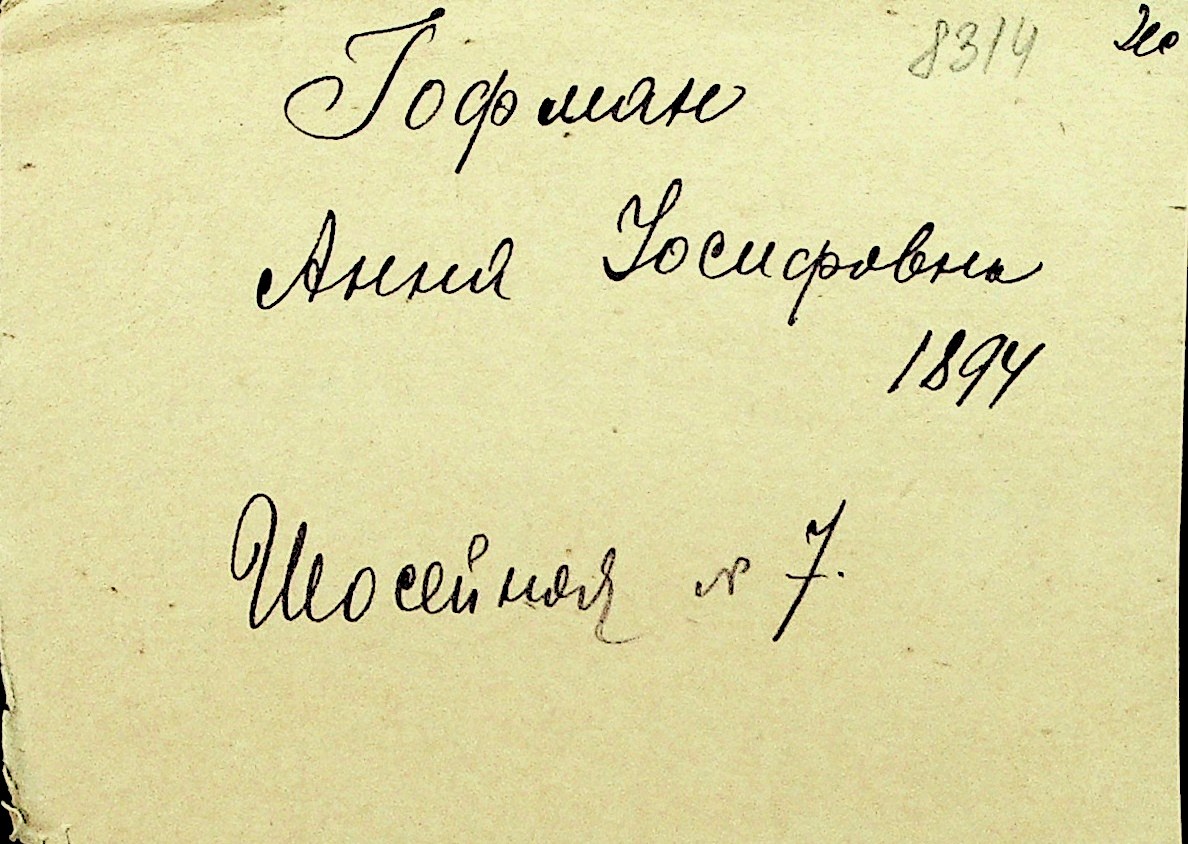 8314
Гофман
Анна Иосифовна
1894
Шосейная № 7.